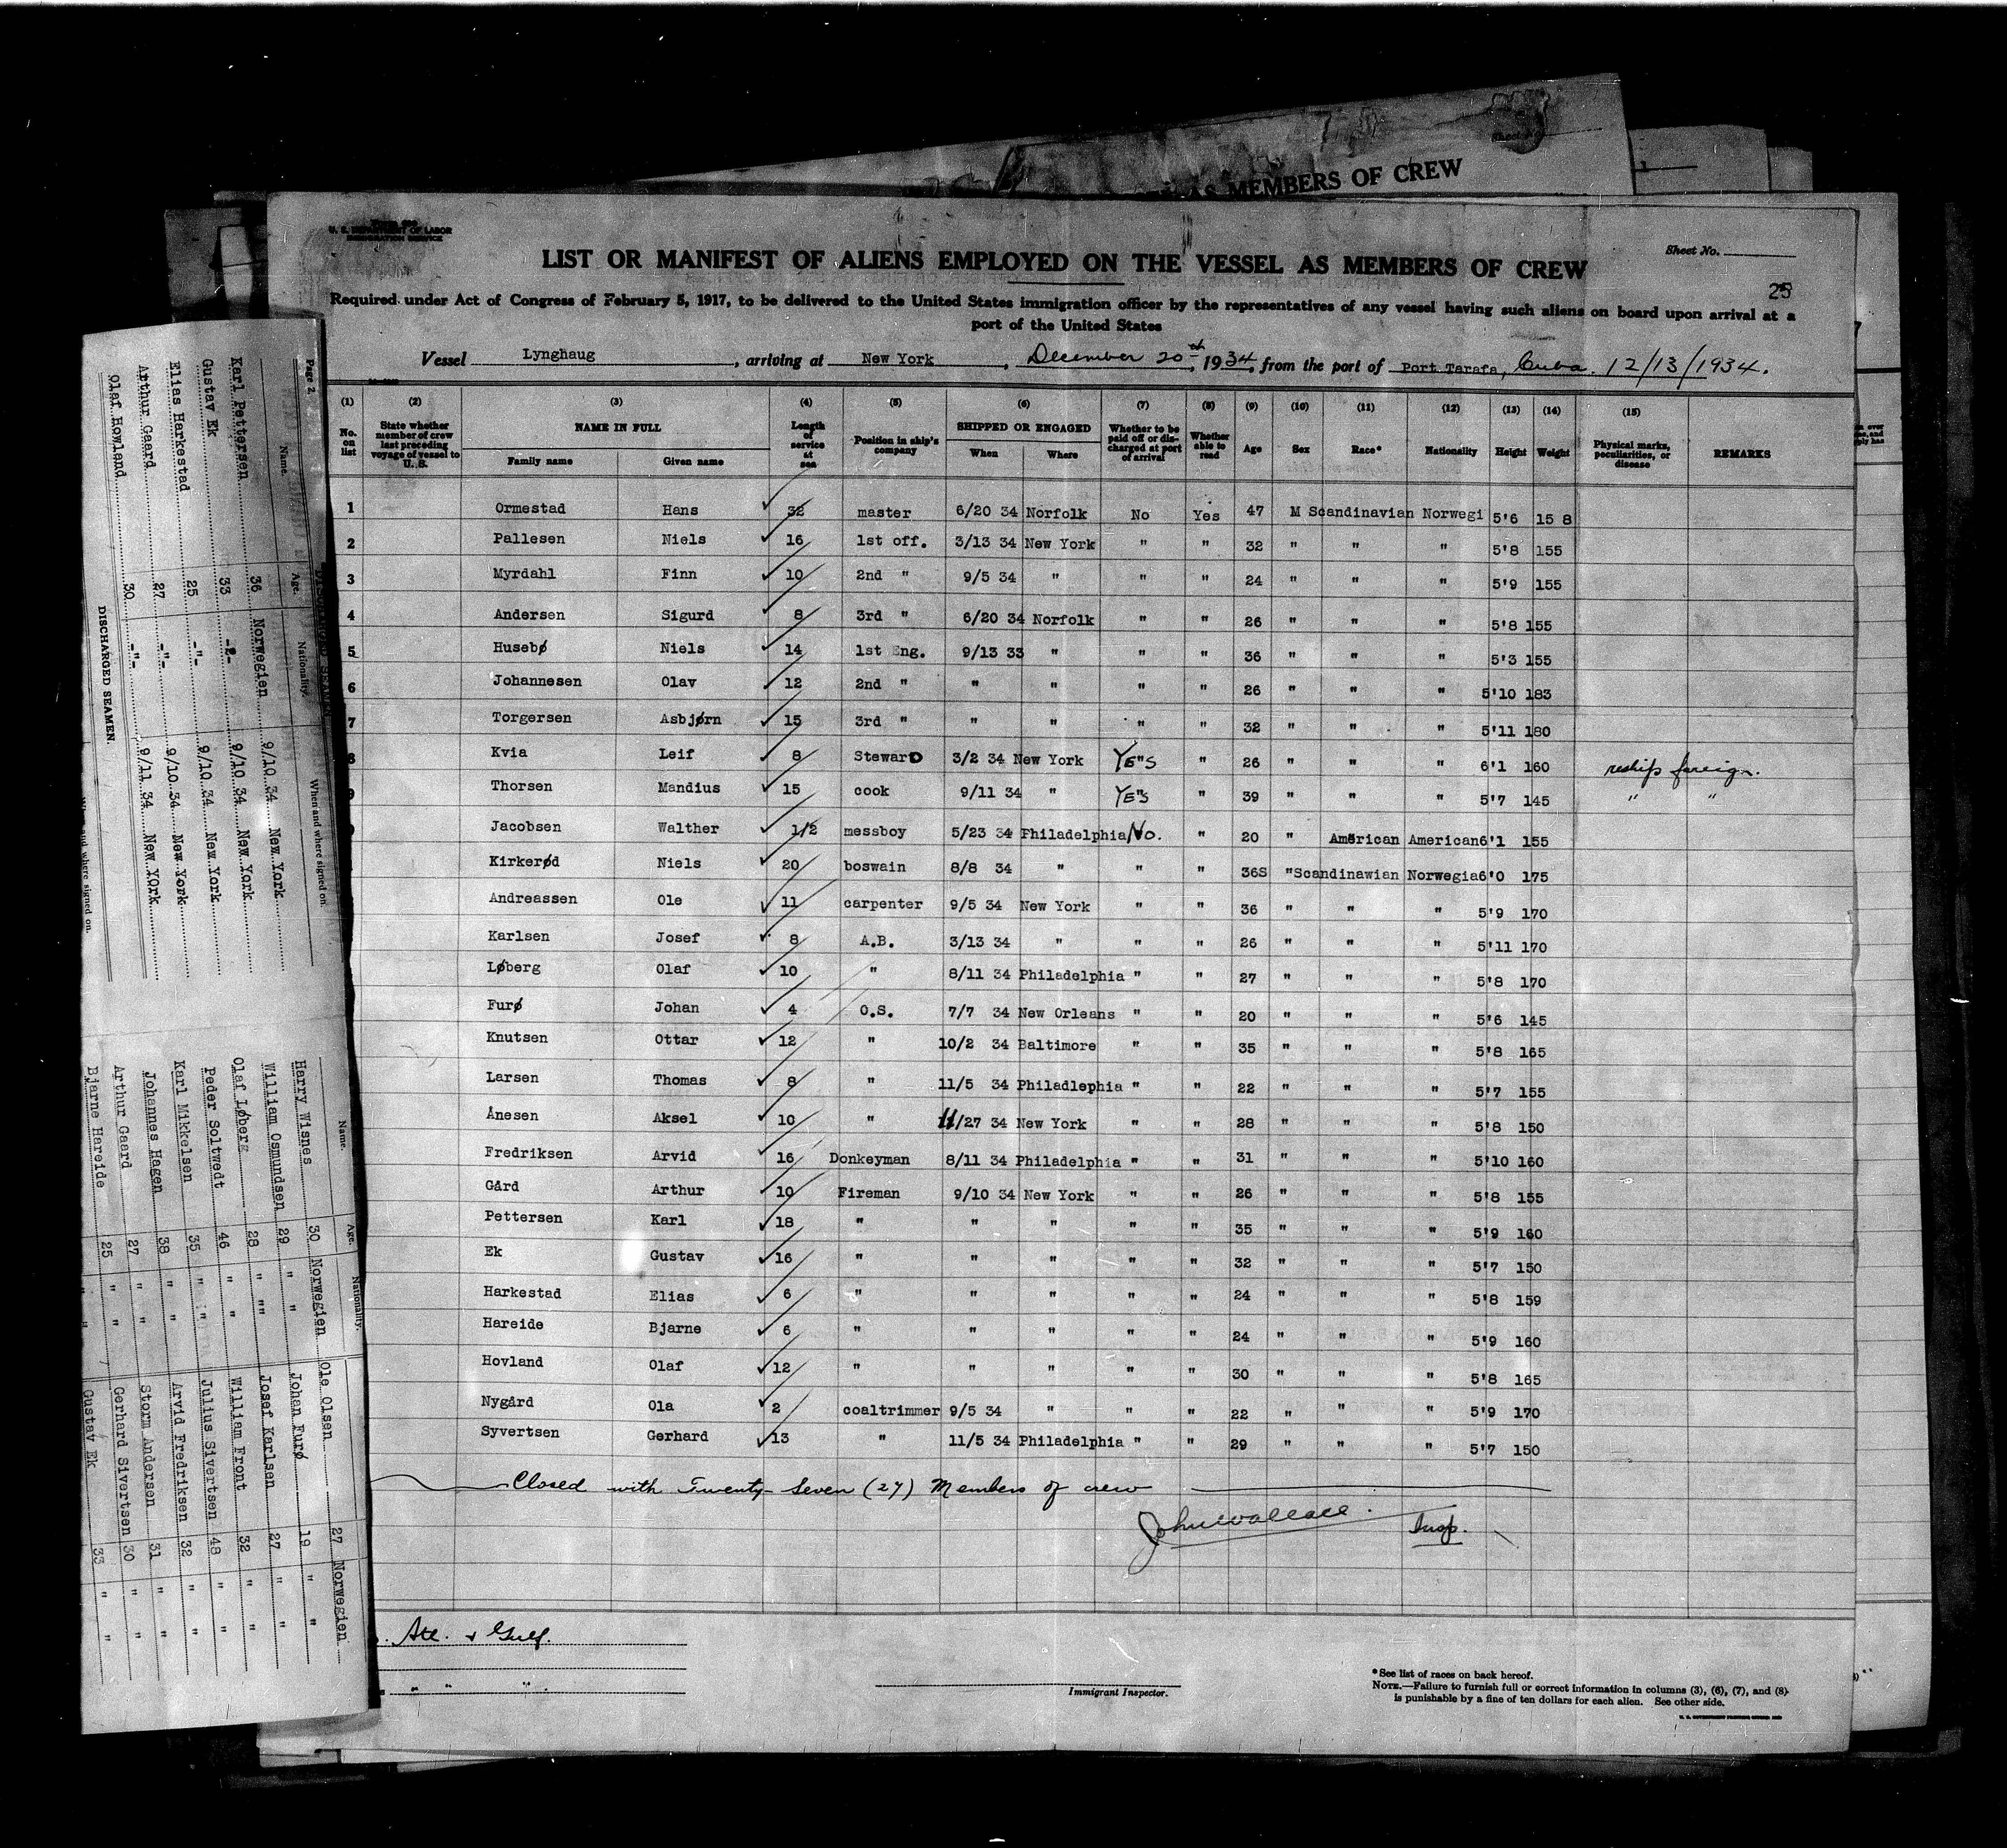 AS MEMBERS OF CREW
U. S. DEPARTMENT OF LABOR
IMMIGRATION SERVICE
Sheet No.
LIST OR MANIFEST OF ALIENS EMPLOYED ON THE VESSEL AS MEMBERS OF CREW
25
Required under Act of Congress of February 5, 1917, to be delivered to the United States immigration officer by the representatives of any vessel having such aliens on board upon arrival at a
port of the United States
Vessel Lynghaug, arriving at New York, December 20th, 1934, from the port of Port Tarafa, Cuba. 12/13/1934.
(1) (2) (3) (4) (5) (6) (7) (8) (9) (10) (11) (12) (13) (14) (15)
No. on list State whether member of crew last preceding voyage of vessel to U. S. NAME IN FULL Family name Given name Length of service at sea Position in ship's company SHIPPED OR ENGAGED When Where Whether to be paid off or discharged at port of arrival Whether able to read Age Sex Race* Nationality Height Weight Physical marks, peculiarities, or disease REMARKS
1 Ormestad Hans 32 master 6/20 34 Norfolk No Yes 47 M Scandinavian Norwegi 5'6 15 8
2 Pallesen Niels 16 1st off. 3/13 34 New York " " 32 " " " 5'8 155
3 Myrdahl Finn 10 2nd " 9/5 34 " " " 24 " " " 5'9 155
4 Andersen Sigurd 8 3rd " 6/20 34 Norfolk " " 26 " " " 5'8 155
5 Husebø Niels 14 1st Eng. 9/13 33 " " " 36 " " " 5'3 155
6 Johannesen Olav 12 2nd " " " " " 26 " " " 5'10 183
7 Torgersen Asbjørn 15 3rd " " " " " 32 " " " 5'11 180
8 Kvia Leif 8 StewarD 3/2 34 New York YE"S " 26 " " " 6'1 160 reship foreign.
9 Thorsen Mandius 15 cook 9/11 34 " YE"S " 39 " " " 5'7 145 " "
Jacobsen Walther 1/2 messboy 5/23 34 Philadelphia No. " 20 " American American 6'1 155
Kirkerød Niels 20 boswain 8/8 34 " " " 36S "Scandinawian Norwegia 6'0 175
Andreassen Ole 11 carpenter 9/5 34 New York " " 36 " " " 5'9 170
Karlsen Josef 8 A.B. 3/13 34 " " " 26 " " " 5'11 170
Løberg Olaf 10 " 8/11 34 Philadelphia " " 27 " " " 5'8 170
Furø Johan 4 O.S. 7/7 34 New Orleans " " 20 " " " 5'6 145
Knutsen Ottar 12 " 10/2 34 Baltimore " " 35 " " " 5'8 165
Larsen Thomas 8 " 11/5 34 Philadlephia " " 22 " " " 5'7 155
Ånesen Aksel 10 " 11/27 34 New York " " 28 " " " 5'8 150
Fredriksen Arvid 16 Donkeyman 8/11 34 Philadelphia " " 31 " " " 5'10 160
Gård Arthur 10 Fireman 9/10 34 New York " " 26 " " " 5'8 155
Pettersen Karl 18 " " " " " 35 " " " 5'9 160
Ek Gustav 16 " " " " " 32 " " " 5'7 150
Harkestad Elias 6 " " " " " 24 " " " 5'8 159
Hareide Bjarne 6 " " " " " 24 " " " 5'9 160
Hovland Olaf 12 " " " " " 30 " " " 5'8 165
Nygård Ola 2 coaltrimmer 9/5 34 " " " 22 " " " 5'9 170
Syvertsen Gerhard 13 " 11/5 34 Philadelphia " " 29 " " " 5'7 150
Closed with Twenty-Seven (27) Members of crew
John Wallace. Insp.
Atl. & Gulf.
" " "
Immigrant Inspector.
*See list of races on back hereof.
NOTE.—Failure to furnish full or correct information in columns (3), (6), (7), and (8)
is punishable by a fine of ten dollars for each alien. See other side.
Page 2
Name. Age. Nationality. When and where signed on.
Karl Pettersen 36 Norwegien 9/10 34 New York
Gustav Ek 33 -"- 9/10 34 New York
Elias Harkestad 25 -"- 9/10 34 New York
Arthur Gaard 27 -"- 9/10 34 New York
Olaf Howland 30 -"- 9/11 34 New York
DISCHARGED SEAMEN.
Name. Age. Nationality.
Harry Wisnes 30 Norwegien Ole Olsen 27 Norwegien
William Osmundsen 29 " " Johan Furø 19 " "
Olaf Løberg 28 " " Josef Karlsen 27 " "
Peder Soltwedt 46 " " William Front 32 " "
Karl Mikkelsen 35 " " Julius Sivertsen 48 " "
Johannes Hagen 38 " " Arvid Fredriksen 32 " "
Arthur Gaard 27 " " Storm Andersen 31 " "
Bjarne Hareide 25 " " Gerhard Sivertsen 30 " "
Gustav Ek 33 " "